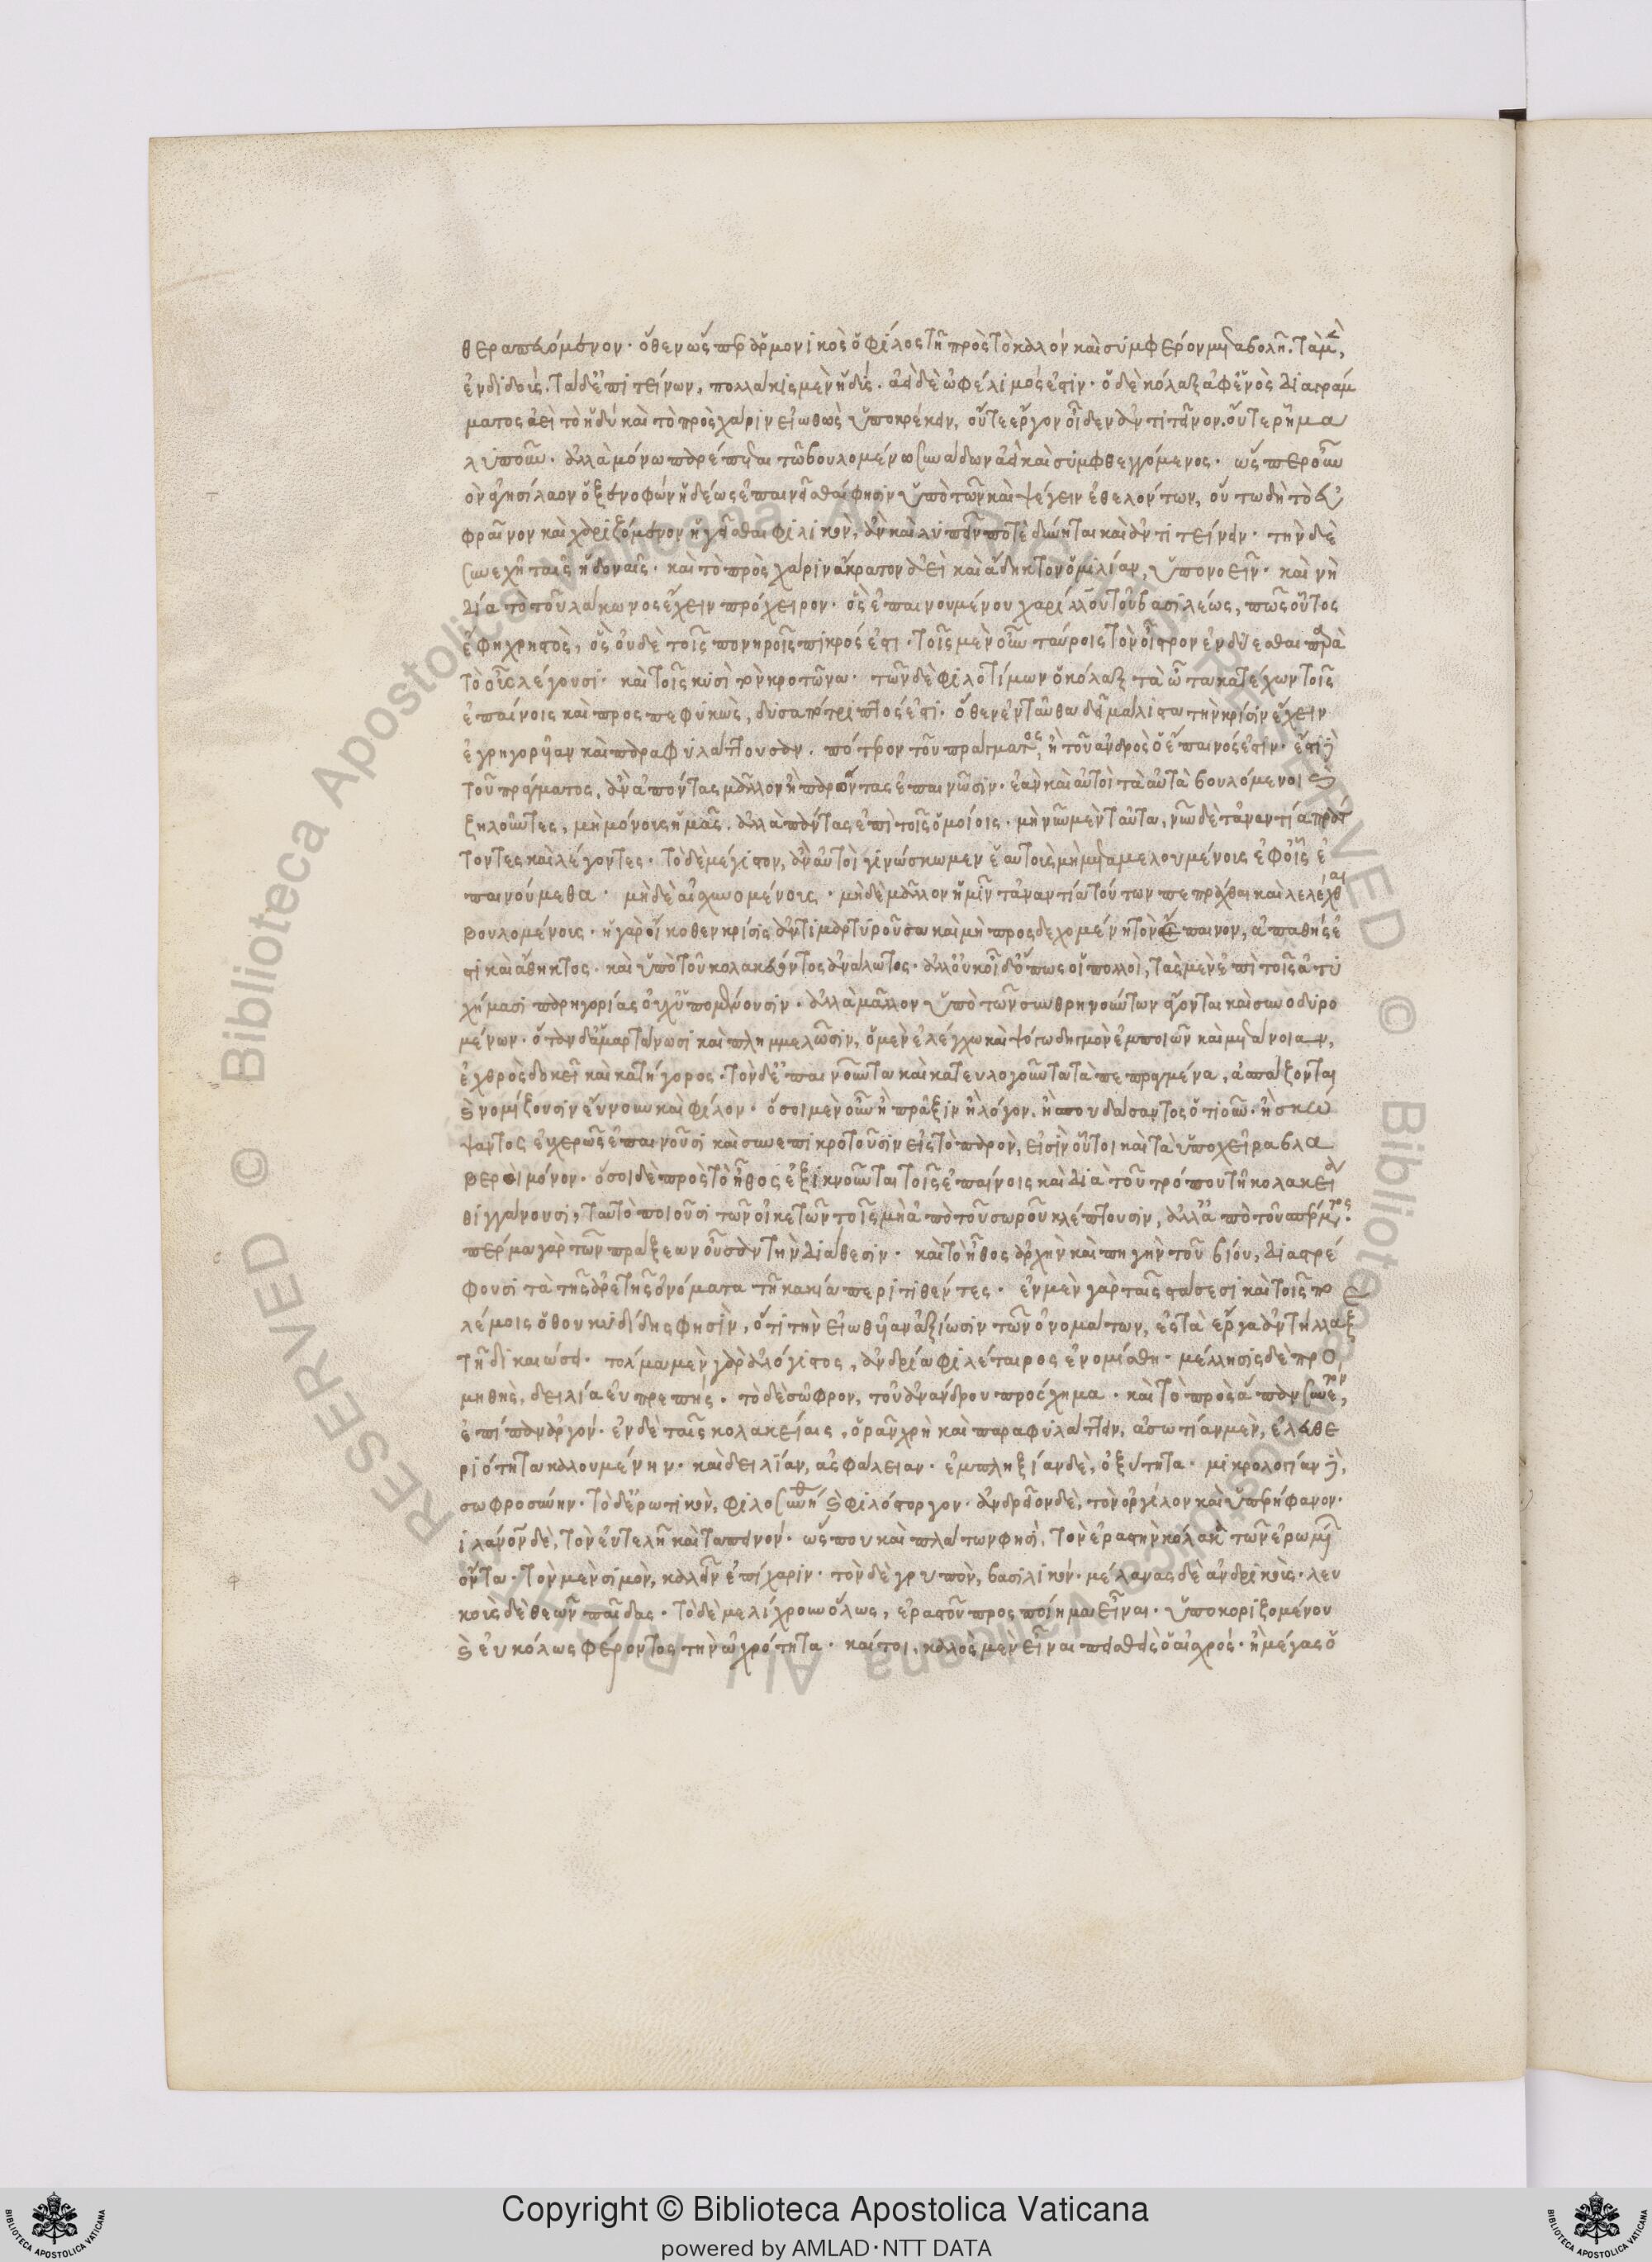 θεραπευόμενον. ὅθεν ὥσπερ ἁρμονικὸς ὁ φίλος τῆ πρὸς τὸ καλὸν καὶ συμφέρον μεταβολῆ. τὰ μὲν
ἐνδιδοὺς. τὰ δ' ἐπιτείνων, πολλάκις μὲν ἡδὺς. ἀεὶ δὲ ὠφέλιμός ἐστιν. ὁ δὲ κόλαξ ἀφ' ἑνὸς διαγράμ
ματος ἀεὶ τὸ ἡδὺ καὶ τὸ πρὸς χάριν εἰωθὼς ὑποκρέκειν, οὔτε ἔργον οἶδεν ἀντιτεῖνον. οὔτε ῥῆμα
λυποῦν. ἀλλὰ μόνω παρέπεται τῶ βουλομένω συνάδων ἀεὶ καὶ συμφθεγγόμενος. ὥσπερ οὖν
ὸν ἀγησίλαον ὁ ξενοφῶν ἡδέως ἐπαινεῖσθαί φησιν ὑπὸ τῶν καὶ ψέγειν ἐθελόντων, οὕτω δὴ τὸ εὐ
φραῖνον καὶ χαριζόμενον ἡγεῖσθαι φιλικὸν, ἂν καὶ λυπεῖν ποτὲ δύνηται καὶ ἀντιτείνειν. τὴν δὲ
συνεχῆ ταῖς ἡδοναῖς. καὶ τὸ πρὸς χάριν ἄκρατον ἀεὶ καὶ ἄδηκτον ὁμιλίαν, ὑπονοεῖν. καὶ νὴ
δία τὸ τοῦ λάκωνος ἔχειν πρόχειρον. ὃς ἐπαινουμένου χαρίλλου τοῦ βασιλέως, πῶς οὗτος
ἔφη χρηστὸς, ὃς οὐδὲ τοῖς πονηροῖς πικρός ἐστι. τοῖς μὲν οὖν ταύροις τὸν οἶστρον ἐνδύεσθαι παρὰ
τὸ οὖς λέγουσι. καὶ τοῖς κυσὶ τὸν κροτῶνα. τῶν δὲ φιλοτίμων ὁ κόλαξ τὰ ὦτα κατέχων τοῖς
ἐπαίνοις καὶ προσπεφυκὼς, δυσαπότριπτός ἐστι. ὅθεν ἐνταῦθα δεῖ μάλιστα τὴν κρίσιν ἔχειν
ἐγρηγορυῖαν καὶ παραφυλάττουσαν. πότερον τοῦ πράγματος, ἢ τοῦ ἀνδρὸς ὁ ἔπαινός ἐστιν. ἔστι δὲ
τοῦ πράγματος, ἂν ἀπόντας μᾶλλον ἢ παρόντας ἐπαινῶσιν. ἐὰν καὶ αὐτοὶ τὰ αὐτὰ βουλόμενοι καὶ
ζηλοῦντες, μὴ μόνους ἡμᾶς. ἀλλὰ πάντας ἐπὶ τοῖς ὁμοίοις. μὴ νῦν μὲν ταῦτα, νῦν δὲ τἀναντία πράτ
τοντες καὶ λέγοντες. τὸ δὲ μέγιστον, ἂν αὐτοὶ γινώσκωμεν ἑαυτοὺς μὴ μεταμελουμένους ἐφ' οἷς ἐ
παινούμεθα. μὴ δὲ αἰσχυνομένους. μὴ δὲ μᾶλλον ἡμῖν τἀναντία τούτων πεπρᾶχθαι καὶ λελέχθαι
βουλομένους. ἡ γὰρ οἴκοθεν κρίσις ἀντιμαρτυροῦσα καὶ μὴ προσδεχομένη τὸν ἔπαινον, ἀπαθής ἐ
στι καὶ ἄθηκτος. καὶ ὑπὸ τοῦ κολακεύοντος ἀνάλωτος. ἀλλ' οὐκ οἶδ' ὅπως οἱ πολλοὶ, τὰς μὲν ἐπὶ τοῖς ἀτυ
χήμασι παρηγορίας οὐχ ὑπομένουσιν. ἀλλὰ μᾶλλον ὑπὸ τῶν συνθρηνούντων ἄγονται καὶ συνοδυρο
μένων. ὅταν δ' ἁμαρτάνωσι καὶ πλημμελῶσιν, ὁ μὲν ἐλέγχω καὶ ψόγω δηγμὸν ἐμποιῶν καὶ μετάνοιαν,
ἐχθρὸς δοκεῖ καὶ κατήγορος. τὸν δ' ἐπαινοῦντα καὶ κατευλογοῦντα τὰ πεπραγμένα, ἀσπάζονται
καὶ νομίζουσιν εὔνουν καὶ φίλον. ὅσοι μὲν οὖν ἢ πρᾶξιν ἢ λόγον. ἢ σπουδάσαντος ὁτιοῦν. ἢ σκώ
ψαντος εὐχερῶς ἐπαινοῦσι καὶ συνεπικροτοῦσιν εἰς τὸ παρὸν, εἰσὶν οὗτοι καὶ τὰ ὑποχείρα βλα
βεροὶ μόνον. ὅσοι δὲ πρὸς τὸ ἦθος ἐξικνοῦνται τοῖς ἐπαίνοις καὶ διὰ τοῦ τρόπου τῆ κολακείᾳ
θιγγάνουσι, ταὐτὸ ποιοῦσι τῶν οἰκετῶν τοῖς μὴ ἀπὸ τοῦ σωροῦ κλέπτουσιν, ἀλλ' ἀπὸ τοῦ σπέρματος.
σπέρμα γὰρ τῶν πράξεων οὖσαν τὴν διάθεσιν. καὶ τὸ ἦθος ἀρχὴν καὶ πηγὴν τοῦ βίου, διαστρέ
φουσι τὰ τῆς ἀρετῆς ὀνόματα τῆ κακία περιτιθέντες. ἐν μὲν γὰρ ταῖς στάσεσι καὶ τοῖς πο
λέμοις ὁ θουκυδίδης φησὶν, ὅτι τὴν εἰωθυῖαν ἀξίωσιν τῶν ὀνομάτων, ἐς τὰ ἔργα ἀντήλλαξαν
τῆ δικαιώσει. τόλμα μὲν γὰρ ἀλόγιστος, ἀνδρία φιλέταιρος ἐνομίσθη. μέλλησις δὲ προ
μηθὴς, δειλία εὐπρεπής. τὸ δὲ σῶφρον, τοῦ ἀνάνδρου πρόσχημα. καὶ τὸ πρὸς ἅπαν συνετὸν,
ἐπίπαν ἀργόν. ἐν δὲ ταῖς κολακείαις, ὁρᾶν χρὴ καὶ παραφυλάττειν, ἀσωτίαν μὲν, ἐλευθε
ριότητα καλουμένην. καὶ δειλίαν, ἀσφάλειαν. ἐμπληξίαν δὲ, ὀξύτητα. μικρολογίαν δὲ,
σωφροσύνην. τὸ δ' ἐρωτικὸν, φιλοσυνήθη καὶ φιλόστοργον. ἀνδρεῖον δὲ, τὸν ὀργίλον καὶ ὑπερήφανον.